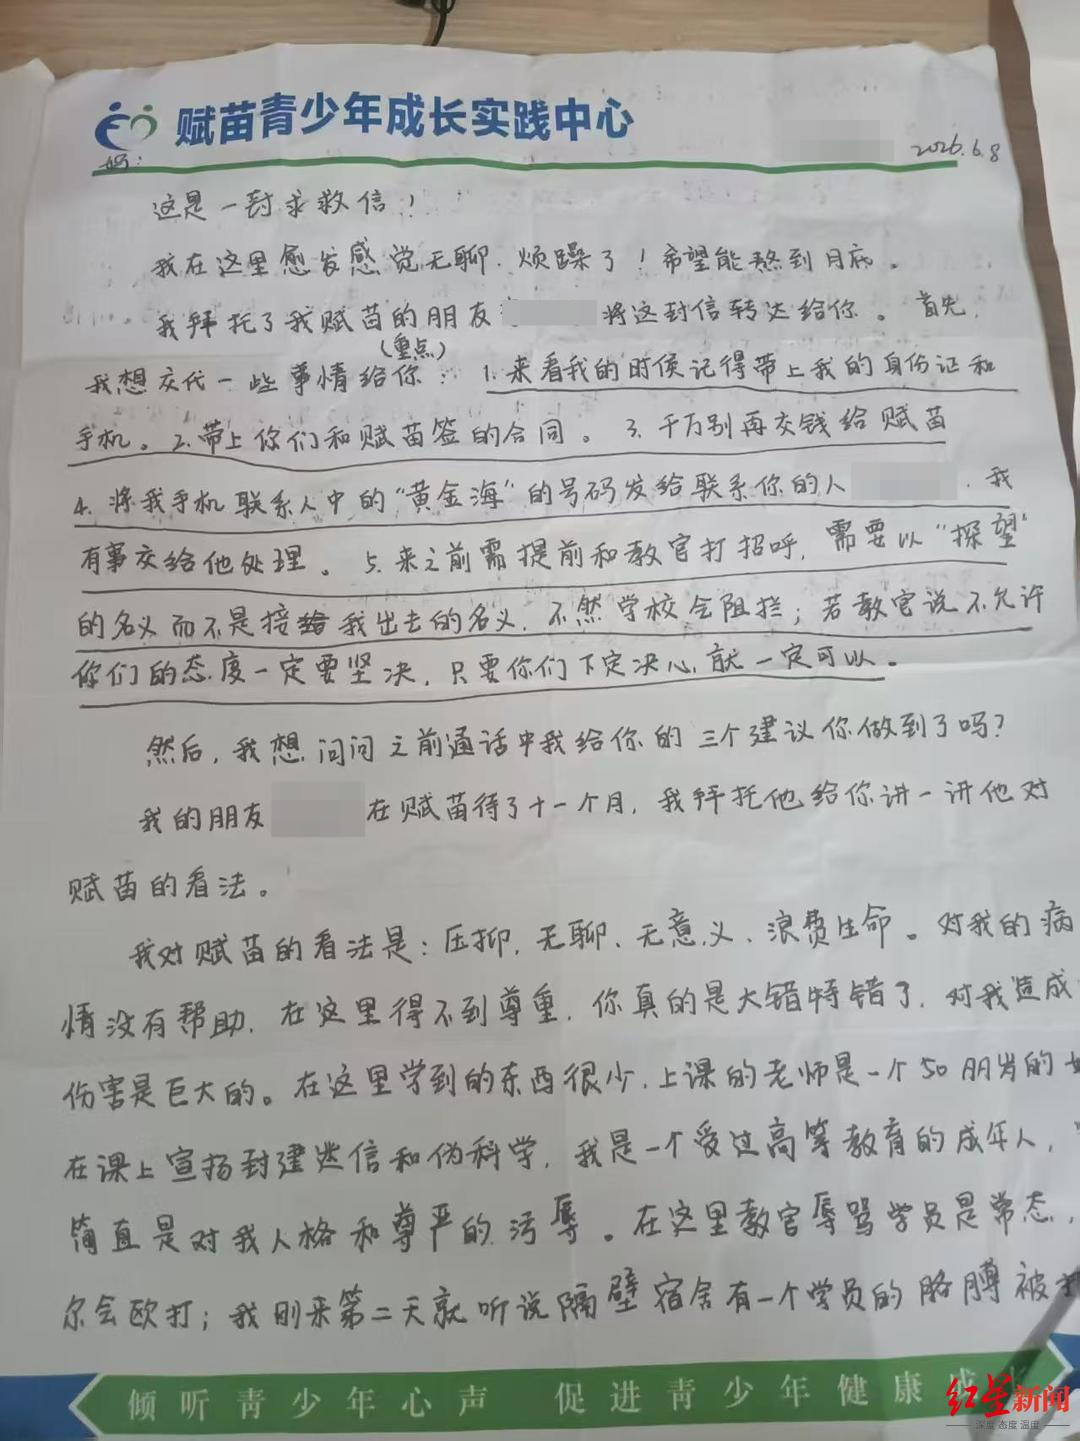 赋苗青少年成长实践中心
2026.6.8
妈:
这是一封求救信!
我在这里愈发感觉无聊、烦躁了!希望能熬到月底。
我拜托了我赋苗的朋友 将这封信转达给你。首先,
(重点)
我想交代一些事情给你:1.来看我的时候记得带上我的身份证和
手机。2.带上你们和赋苗签的合同。3.千万别再交钱给赋苗
4.将我手机联系人中的“黄金海”的号码发给联系你的人 ,我
有事交给他处理。5.来之前需提前和教官打招呼,需要以“探望”
的名义而不是接我出去的名义,不然学校会阻拦;若教官说不允许
你们的态度一定要坚决,只要你们下定决心,就一定可以。
然后,我想问问之前通话中我给你的三个建议你做到了吗?
我的朋友 在赋苗待了十一个月,我拜托他给你讲一讲他对
赋苗的看法。
我对赋苗的看法是:压抑、无聊、无意义、浪费生命。对我的病
情没有帮助,在这里得不到尊重,你真的是大错特错了,对我造成
伤害是巨大的。在这里学到的东西很少,上课的老师是一个50多岁的
在课上宣扬封建迷信和伪科学,我是一个受过高等教育的成年人,
简直是对我人格和尊严的污辱。在这里教官辱骂学员是常态,
尔会欧打;我刚来第二天就听说隔壁宿舍有一个学员的胳膊被
倾听青少年心声 促进青少年健康成长
红星新闻
深度 态度 温度